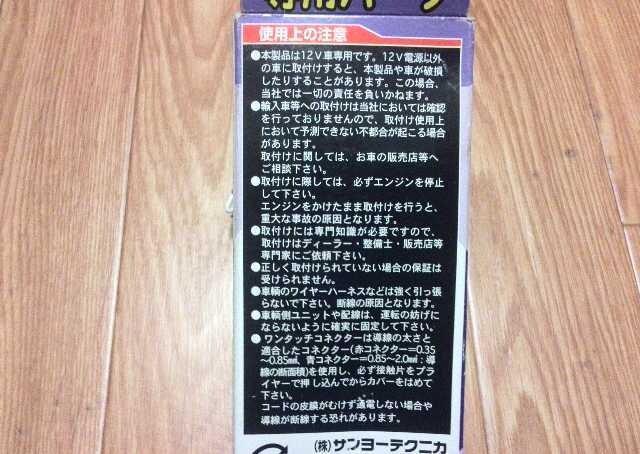 専用パーツ
使用上の注意
●本製品は12V車専用です。12V電源以外
の車に取付けすると、本製品や車が破損
したりすることがあります。この場合、
当社では一切の責任を負いかねます。
●輸入車等への取付けは当社においては確認
を行っておりませんので、取付け使用上
において予測できない不都合が起こる場合
があります。
取付けに関しては、お車の販売店等へ
ご相談下さい。
●取付けに際しては、必ずエンジンを停止
して下さい。
エンジンをかけたまま取付けを行うと、
重大な事故の原因となります。
●取付けには専門知識が必要ですので、
取付けはディーラー・整備士・販売店等
専門家にご依頼下さい。
●正しく取付けられていない場合の保証は
受けられません。
●車輌のワイヤーハーネスなどは強く引っ張
らないで下さい。断線の原因となります。
●車輌側ユニットや配線は、運転の妨げに
ならないように確実に固定して下さい。
●ワンタッチコネクターは導線の太さと
適合したコネクター(赤コネクター=0.35
〜0.85㎟、青コネクター=0.85〜2.0㎟:導
線の断面積)を使用し、必ず接触片をプラ
イヤーで押し込んでからカバーをはめて
下さい。
コードの皮膜がむけず通電しない場合や
導線が断線する恐れがあります。
(株)サンヨーテクニカ